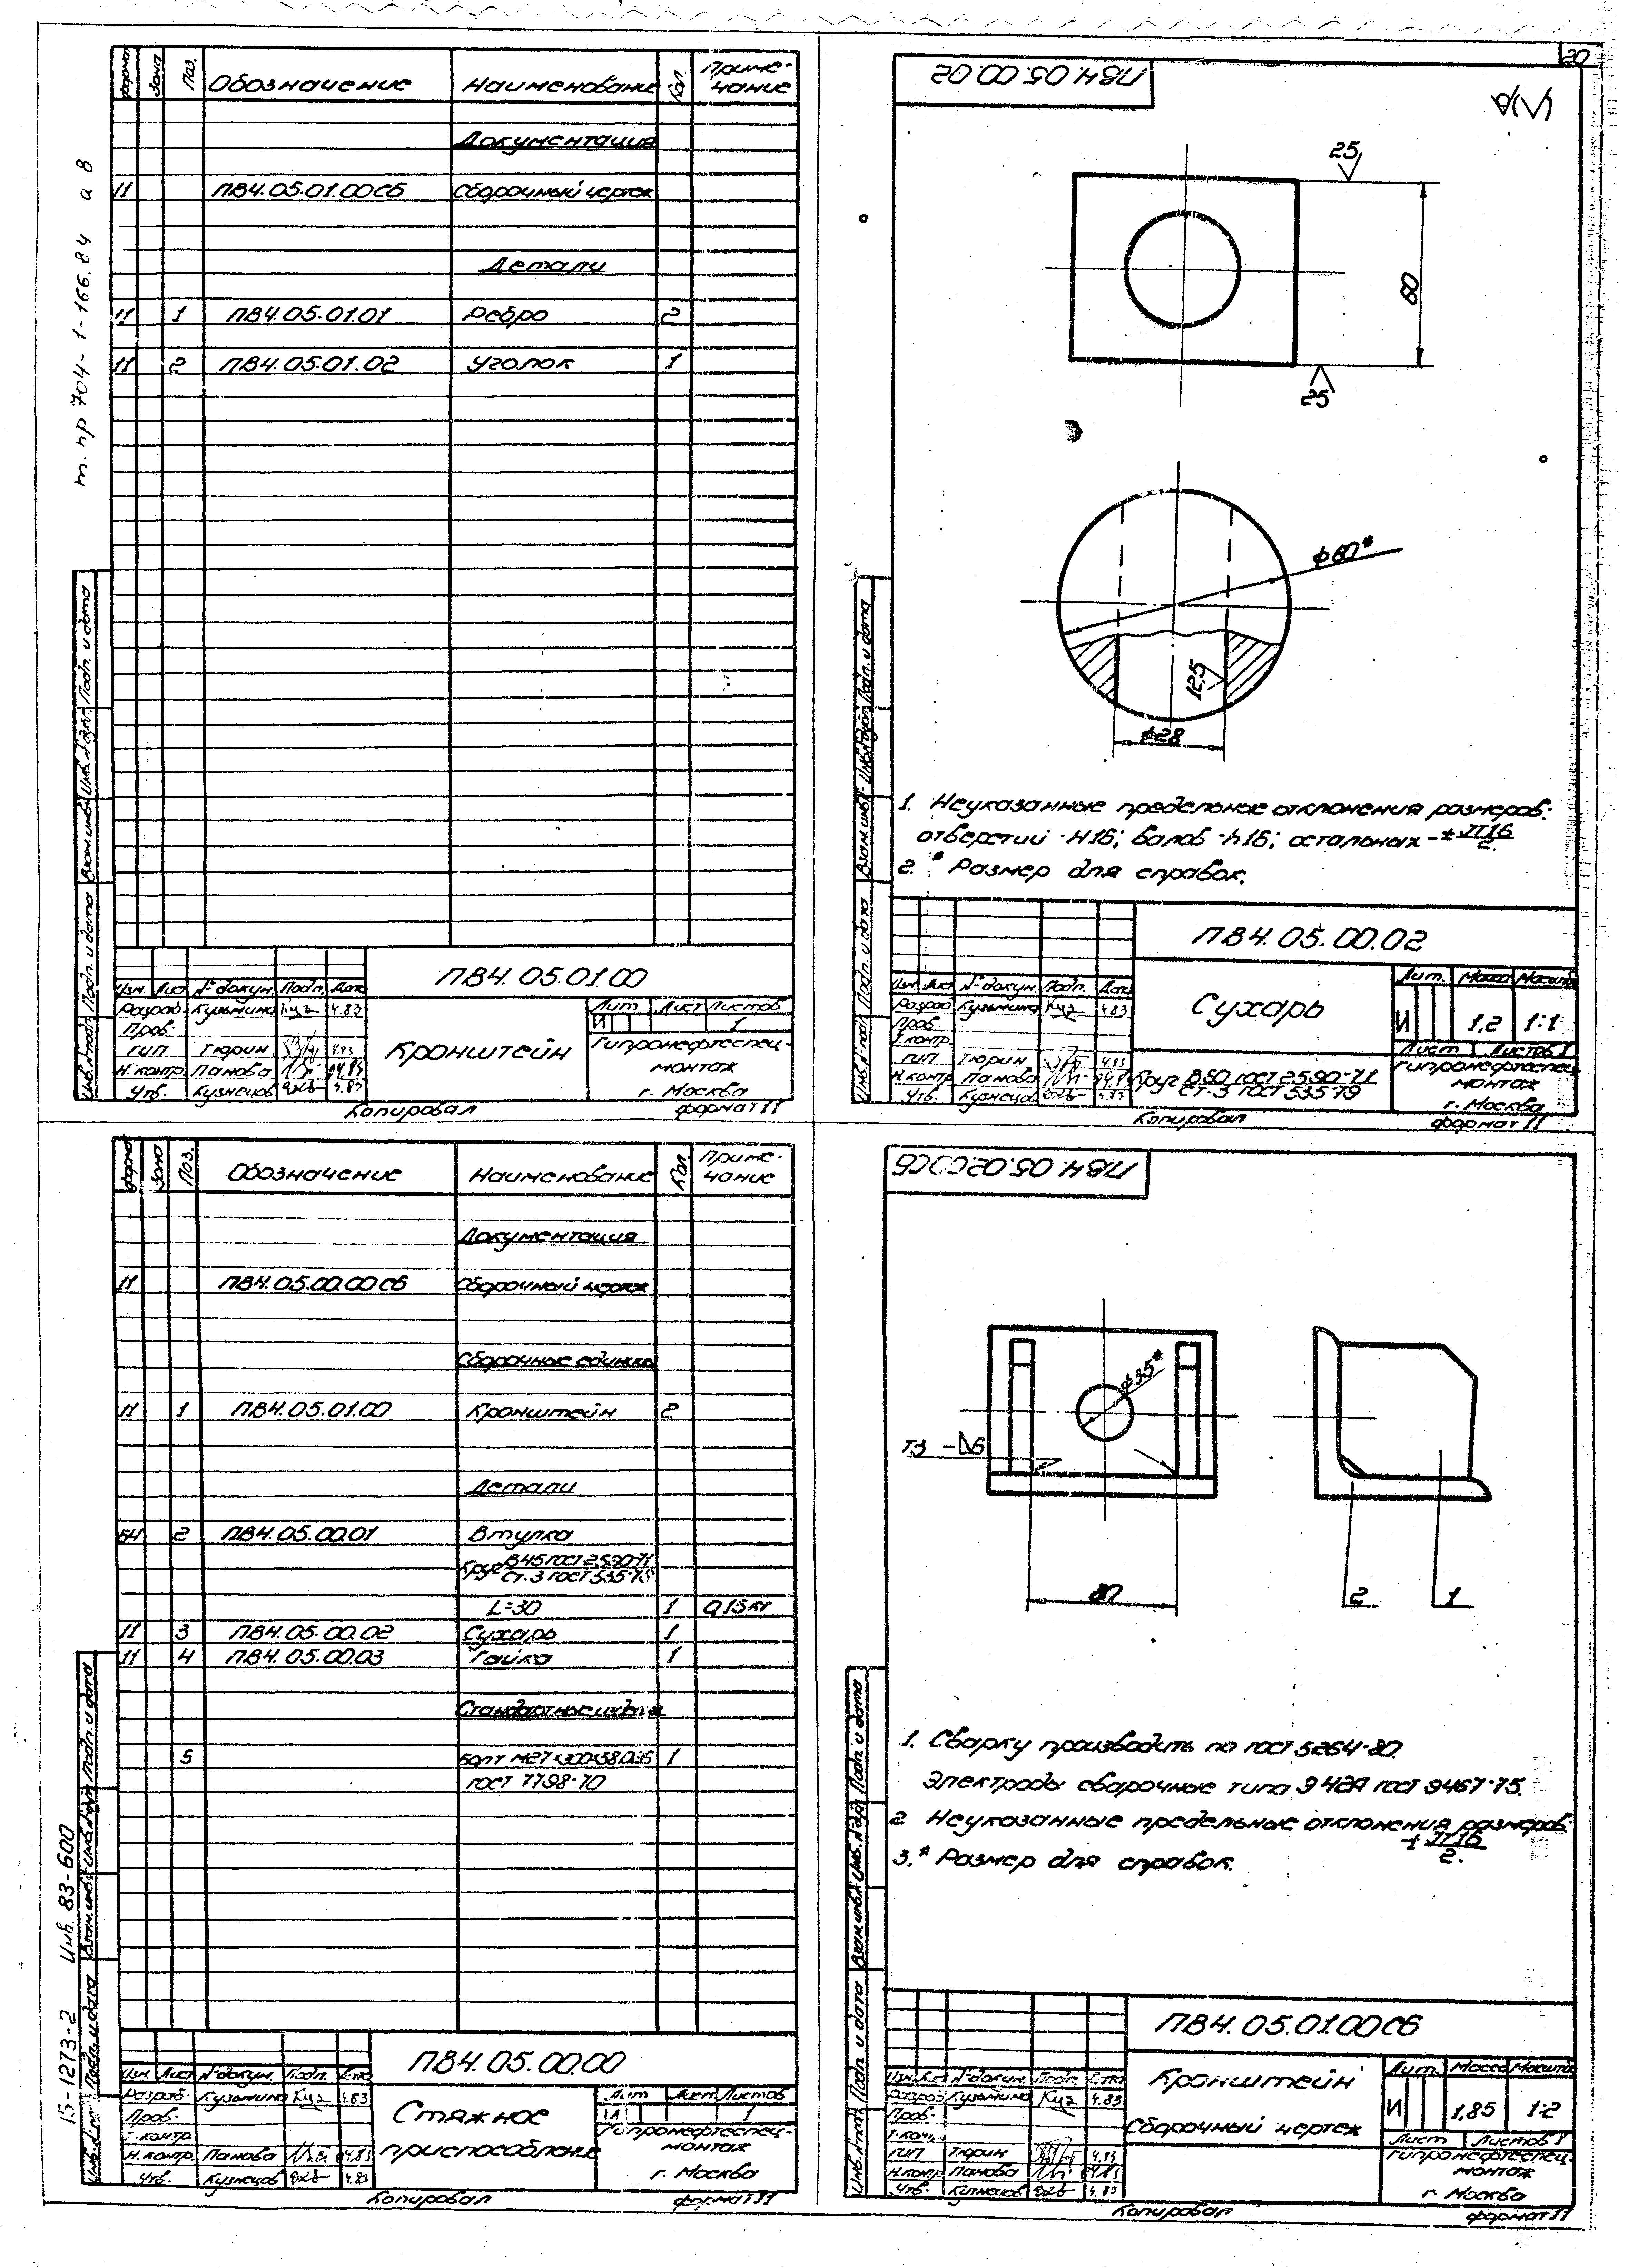 20
т. пр 704-1-166.84 а 8
15-1273-2 Инв. 83-600
формат Зона Поз. Обозначение Наименование Кол. Приме-
чание
Документация
11 ПВ4.05.01.00СБ Сборочный чертеж
Детали
11 1 ПВ4.05.01.01 Ребро 2
11 2 ПВ4.05.01.02 Уголок 1
Инв. № подл. Подп. и дата Взам. инв. № Инв. № дубл. Подп. и дата
ПВ4.05.01.00
Изм. Лист № докум. Подп. Дата
Разраб. Кузьмина Куз 4.83
Пров.
ГИП Тюрин 4.83
Н.контр. Панова 04.83
Утв. Кузнецов 4.83
Кронштейн
Лит Лист Листов
И 1
Гипронефтеспец-
монтаж
г. Москва
Копировал формат 11
ПВ4.05.00.02
25
60
25
ϕ60*
12,5
ϕ28
1. Неуказанные предельные отклонения размеров:
отверстий -H16; валов -h16; остальных -± JT16/2.
2. * Размер для справок.
Инв. № подл. Подп. и дата Взам. инв. № Инв. № дубл. Подп. и дата
ПВ4.05.00.02
Изм. Лист № докум. Подп. Дата
Разраб. Кузьмина Куз 4.83
Пров.
Т.контр.
ГИП Тюрин 4.83
Н.контр. Панова 04.83
Утв. Кузнецов 4.83
Сухарь
Лит. Масса Масштаб
И 1,2 1:1
Лист Листов 1
Круг В60 ГОСТ 2590-71
Ст.3 ГОСТ 535-79
Гипронефтеспец-
монтаж
г. Москва
Копировал формат 11
формат Зона Поз. Обозначение Наименование Кол. Приме-
чание
Документация
11 ПВ4.05.00.00СБ Сборочный чертеж
Сборочные единицы
11 1 ПВ4.05.01.00 Кронштейн 2
Детали
БЧ 2 ПВ4.05.00.01 Втулка
Круг В45 ГОСТ 2590-71
Ст.3 ГОСТ 535-79
L=30 1 0,15кг
11 3 ПВ4.05.00.02 Сухарь 1
11 4 ПВ4.05.00.03 Гайка 1
Стандартные изделия
5 Болт М27×300.58.016 1
ГОСТ 7798-70
Инв. № подл. Подп. и дата Взам. инв. № Инв. № дубл. Подп. и дата
ПВ4.05.00.00
Изм. Лист № докум. Подп. Дата
Разраб. Кузьмина Куз 4.83
Пров.
Т.контр.
Н.контр. Панова 04.83
Утв. Кузнецов 4.83
Стяжное
приспособление
Лит Лист Листов
1
Гипронефтеспец-
монтаж
г. Москва
Копировал формат 11
ПВ4.05.02.00СБ
ϕ35*
Т3 -⊿6
80
2 1
1. Сварку производить по ГОСТ 5264-80.
Электроды сварочные типа Э42А ГОСТ 9467-75.
2. Неуказанные предельные отклонения размеров:
± JT16/2.
3. * Размер для справок.
Инв. № подл. Подп. и дата Взам. инв. № Инв. № дубл. Подп. и дата
ПВ4.05.01.00СБ
Изм. Лист № докум. Подп. Дата
Разраб. Кузьмина Куз 4.83
Пров.
Т.контр.
ГИП Тюрин 4.83
Н.контр. Панова 04.83
Утв. Кузнецов 4.83
Кронштейн
Сборочный чертеж
Лит. Масса Масштаб
И 1,85 1:2
Лист Листов 1
Гипронефтеспец-
монтаж
г. Москва
Копировал формат 11